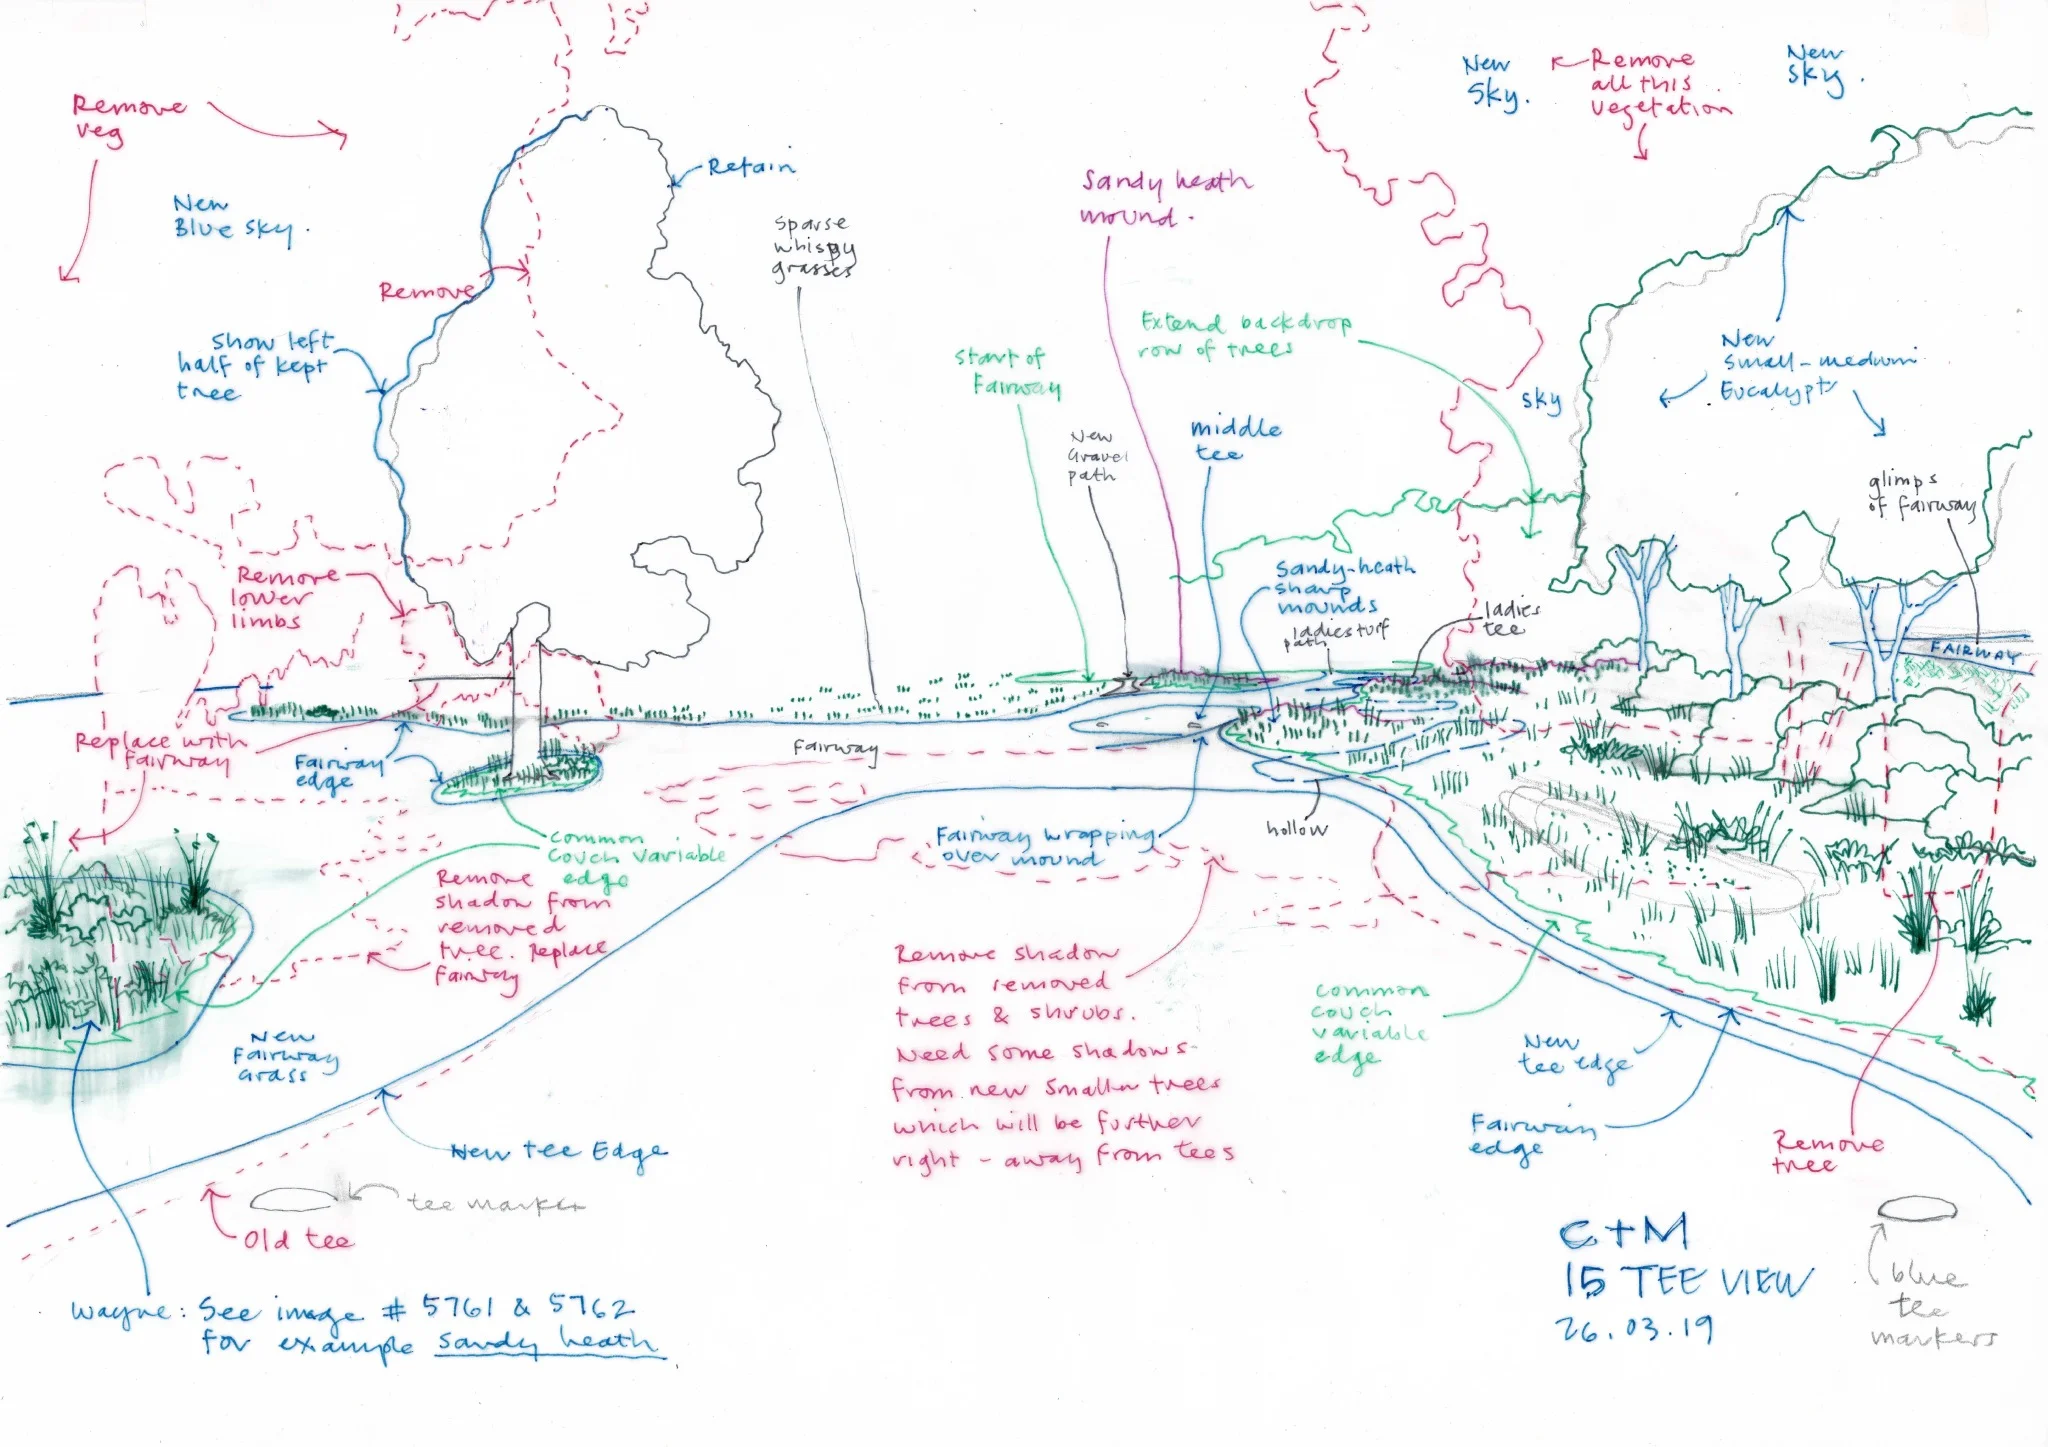 Remove
veg
New
Blue sky.
Remove
Show left
half of kept
tree
Retain
Sparse
whispy
grasses
Sandy heath
mound.
New
Sky.
Remove
all this
vegetation
New
Sky.
Extend backdrop
row of trees
Start of
Fairway
New
Gravel
path
middle
tee
Sky
New
Small-medium
Eucalypts
glimps
of fairway
Remove
lower
limbs
Sandy-heath
sharp
mounds
ladies turf
path
ladies
tee
FAIRWAY
Replace with
fairway
Fairway
edge
Fairway
Common
Couch variable
edge
Fairway wrapping
over mound
hollow
Remove
shadow from
removed
tree. Replace
Fairway
New
Fairway
Grass
Remove shadow
from removed
trees & shrubs.
Need some shadows
from new smaller trees
which will be further
right - away from tees
Common
couch
variable
edge
New
tee edge
Fairway
edge
Remove
tree
New tee Edge
tee marker
Old tee
Wayne: See image # 5761 & 5762
for example sandy heath
C+M
15 TEE VIEW
26.03.19
blue
tee
markers